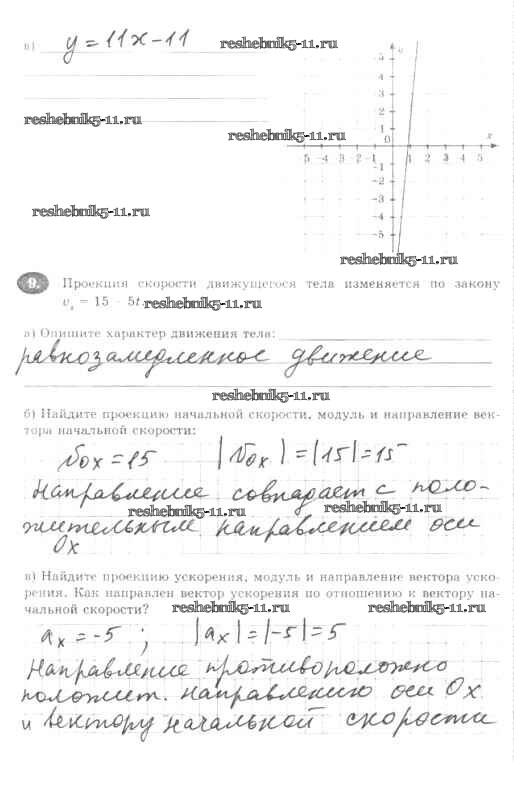 в) y = 11x - 11
reshebnik5-11.ru
reshebnik5-11.ru
reshebnik5-11.ru
reshebnik5-11.ru
5
4
3
2
1
0
x
-5 -4 -3 -2 -1 1 2 3 4 5
-1
-2
-3
-4
-5
reshebnik5-11.ru
9. Проекция скорости движущегося тела изменяется по закону
vx = 15 - 5t. reshebnik5-11.ru
а) Опишите характер движения тела:
равнозамедленное движение
reshebnik5-11.ru
б) Найдите проекцию начальной скорости, модуль и направление век-
тора начальной скорости:
v0x = 15 |v0x| = |15| = 15
Направление совпадает с поло-
reshebnik5-11.ru reshebnik5-11.ru
жительным направлением оси
Ox
в) Найдите проекцию ускорения, модуль и направление вектора уско-
рения. Как направлен вектор ускорения по отношению к вектору на-
чальной скорости? reshebnik5-11.ru reshebnik5-11.ru
ax = -5 ; |ax| = |-5| = 5
Направление противоположно
положит. направлению оси Ox
и вектору начальной скорости